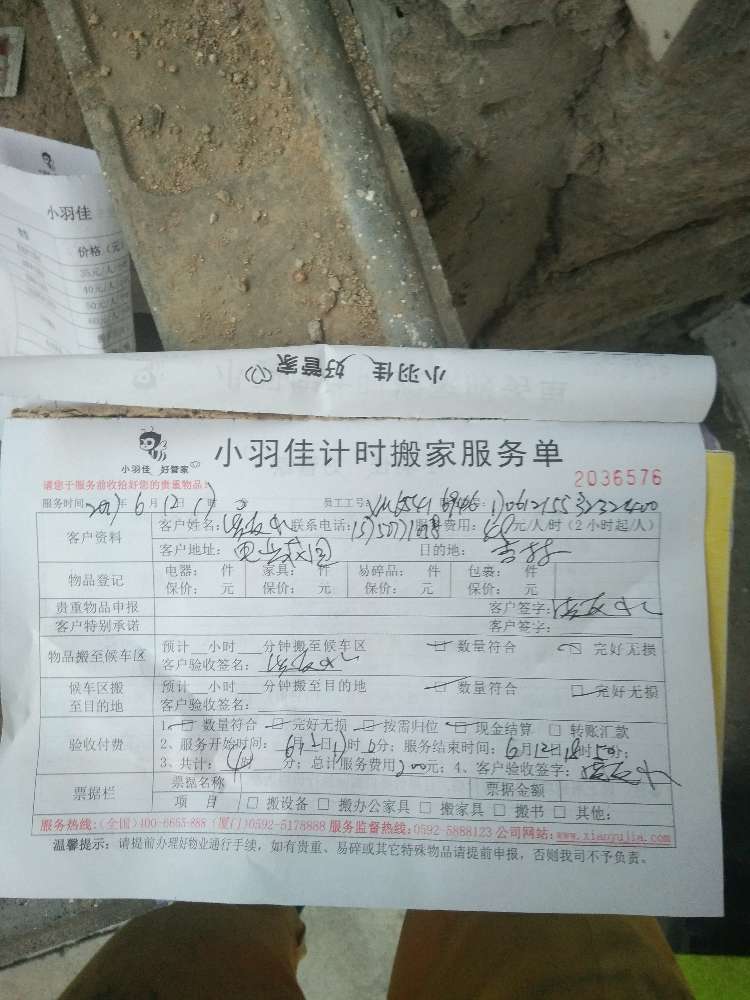 小羽佳
价格（元
35元/人
40元/人
50元/人
小羽佳 好管家
小羽佳 好管家
小羽佳计时搬家服务单
请您于服务前收拾好您的贵重物品！
2036576
服务时间：2017年6月12日 时 员工工号：
客户资料
客户姓名： 联系电话： 服务费用： 元/人/时（2小时起/人）
客户地址： 目的地：
物品登记
电器： 件 家具： 件 易碎品： 件 包裹： 件
保价： 元 保价： 元 保价： 元 保价： 元
贵重物品申报 客户签字：
客户特别承诺 客户签字：
物品搬至候车区
预计__小时__分钟搬至候车区 数量符合 完好无损
客户验收签名：
候车区搬至目的地
预计__小时__分钟搬至目的地 数量符合 完好无损
客户验收签名：
验收付费
1、数量符合 完好无损 按需归位 现金结算 转账汇款
2、服务开始时间：6月12日 时 分；服务结束时间：6月12日18时50分；
3、共计：4时 分；总计服务费用200元；4、客户验收签字：
票据栏
票据名称 票据金额
项 目 搬设备 搬办公家具 搬家具 搬书 其他：
服务热线：（全国）400-6665-888（厦门）0592-5178888 服务监督热线：0592-5888123 公司网站：www.xiaoyujia.com
温馨提示：请提前办理好物业通行手续，如有贵重、易碎或其它特殊物品请提前申报，否则我司不予负责。